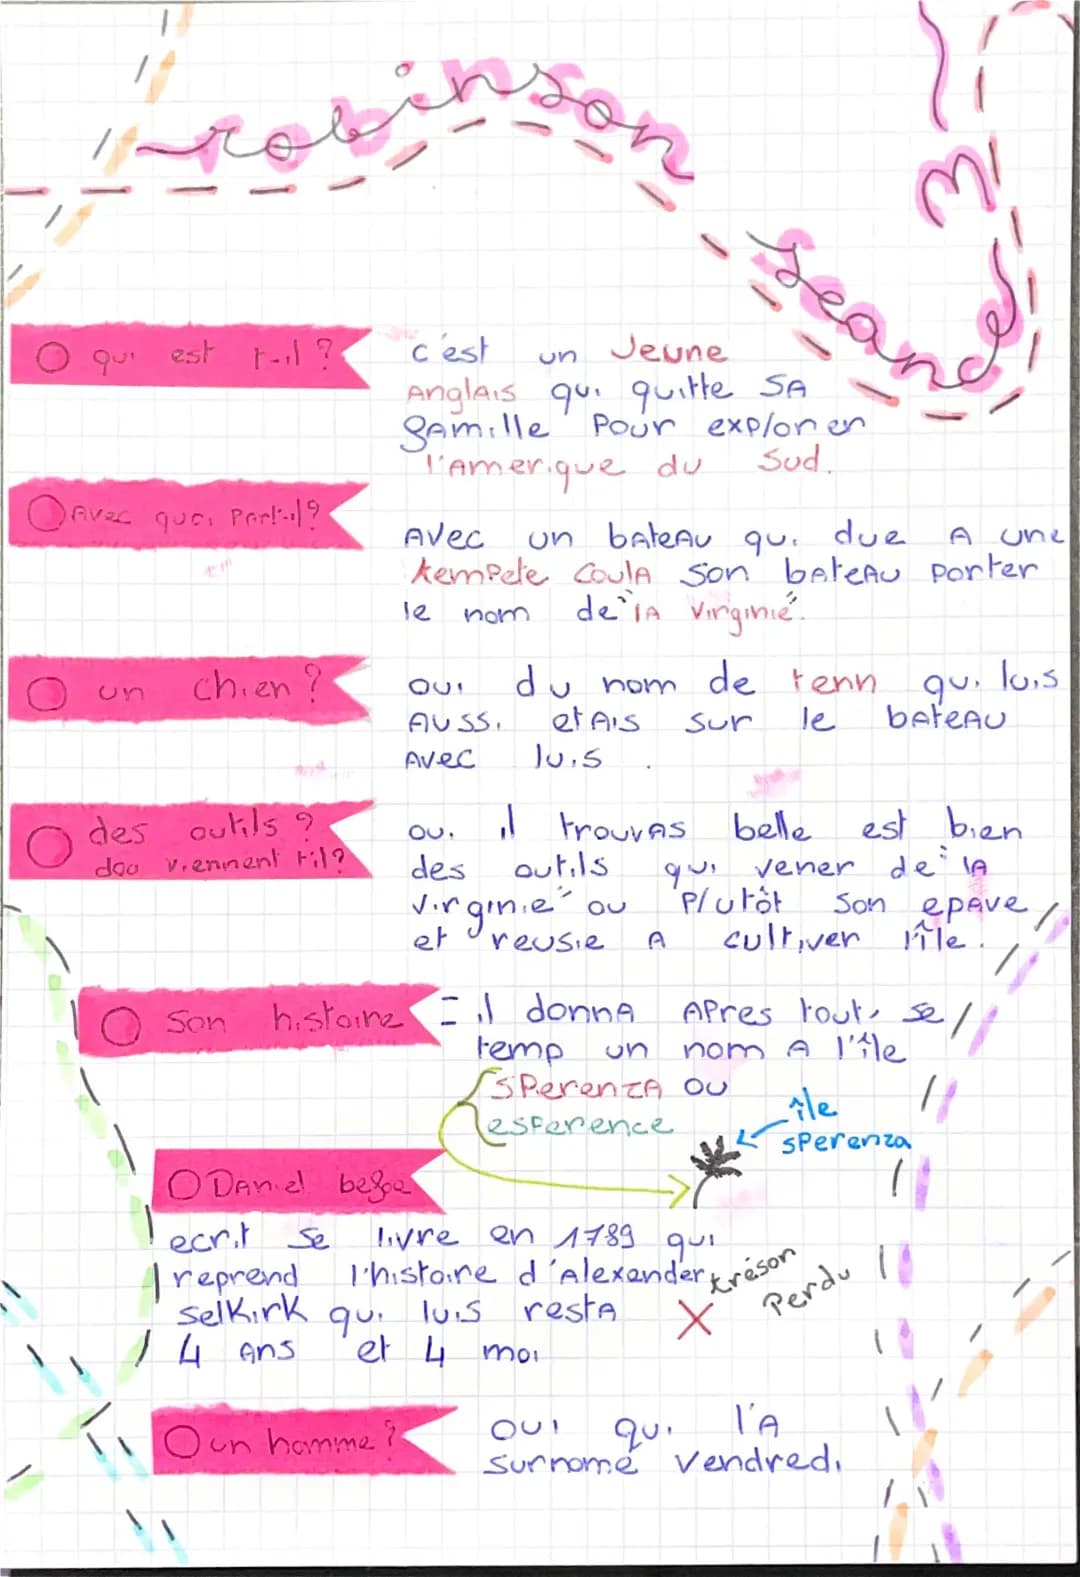 robinson
seance
3
○ qui est t-il ?
c'est un Jeune
Anglais qui quitte SA
famille pour explorer
l'Amerique du Sud.
○ Avec quoi Part-il ?
Avec un bateau qui due A une
tempete coula son bateau porter
le nom de "la Virginie".
○ un chien ?
oui du nom de tenn qui luis
Aussi etAis sur le bateau
Avec luis .
○ des outils ?
doo viennent t'il ?
oui il trouvas belle est bien
des outils qui vener de "la
virginie" ou plutôt son epave
et reusie A cultiver l'île .
○ Son histoire
= il donna Apres tout, se
temp un nom A l'île
sperenza ou
esperence
île
sperenza
○ Daniel befoe
ecrit se livre en 1789 qui
reprend l'histoire d'Alexander
selkirk qui luis resta
4 ans et 4 moi
trésor
perdu
○ un homme ?
oui qui l'A
surnomé vendredi